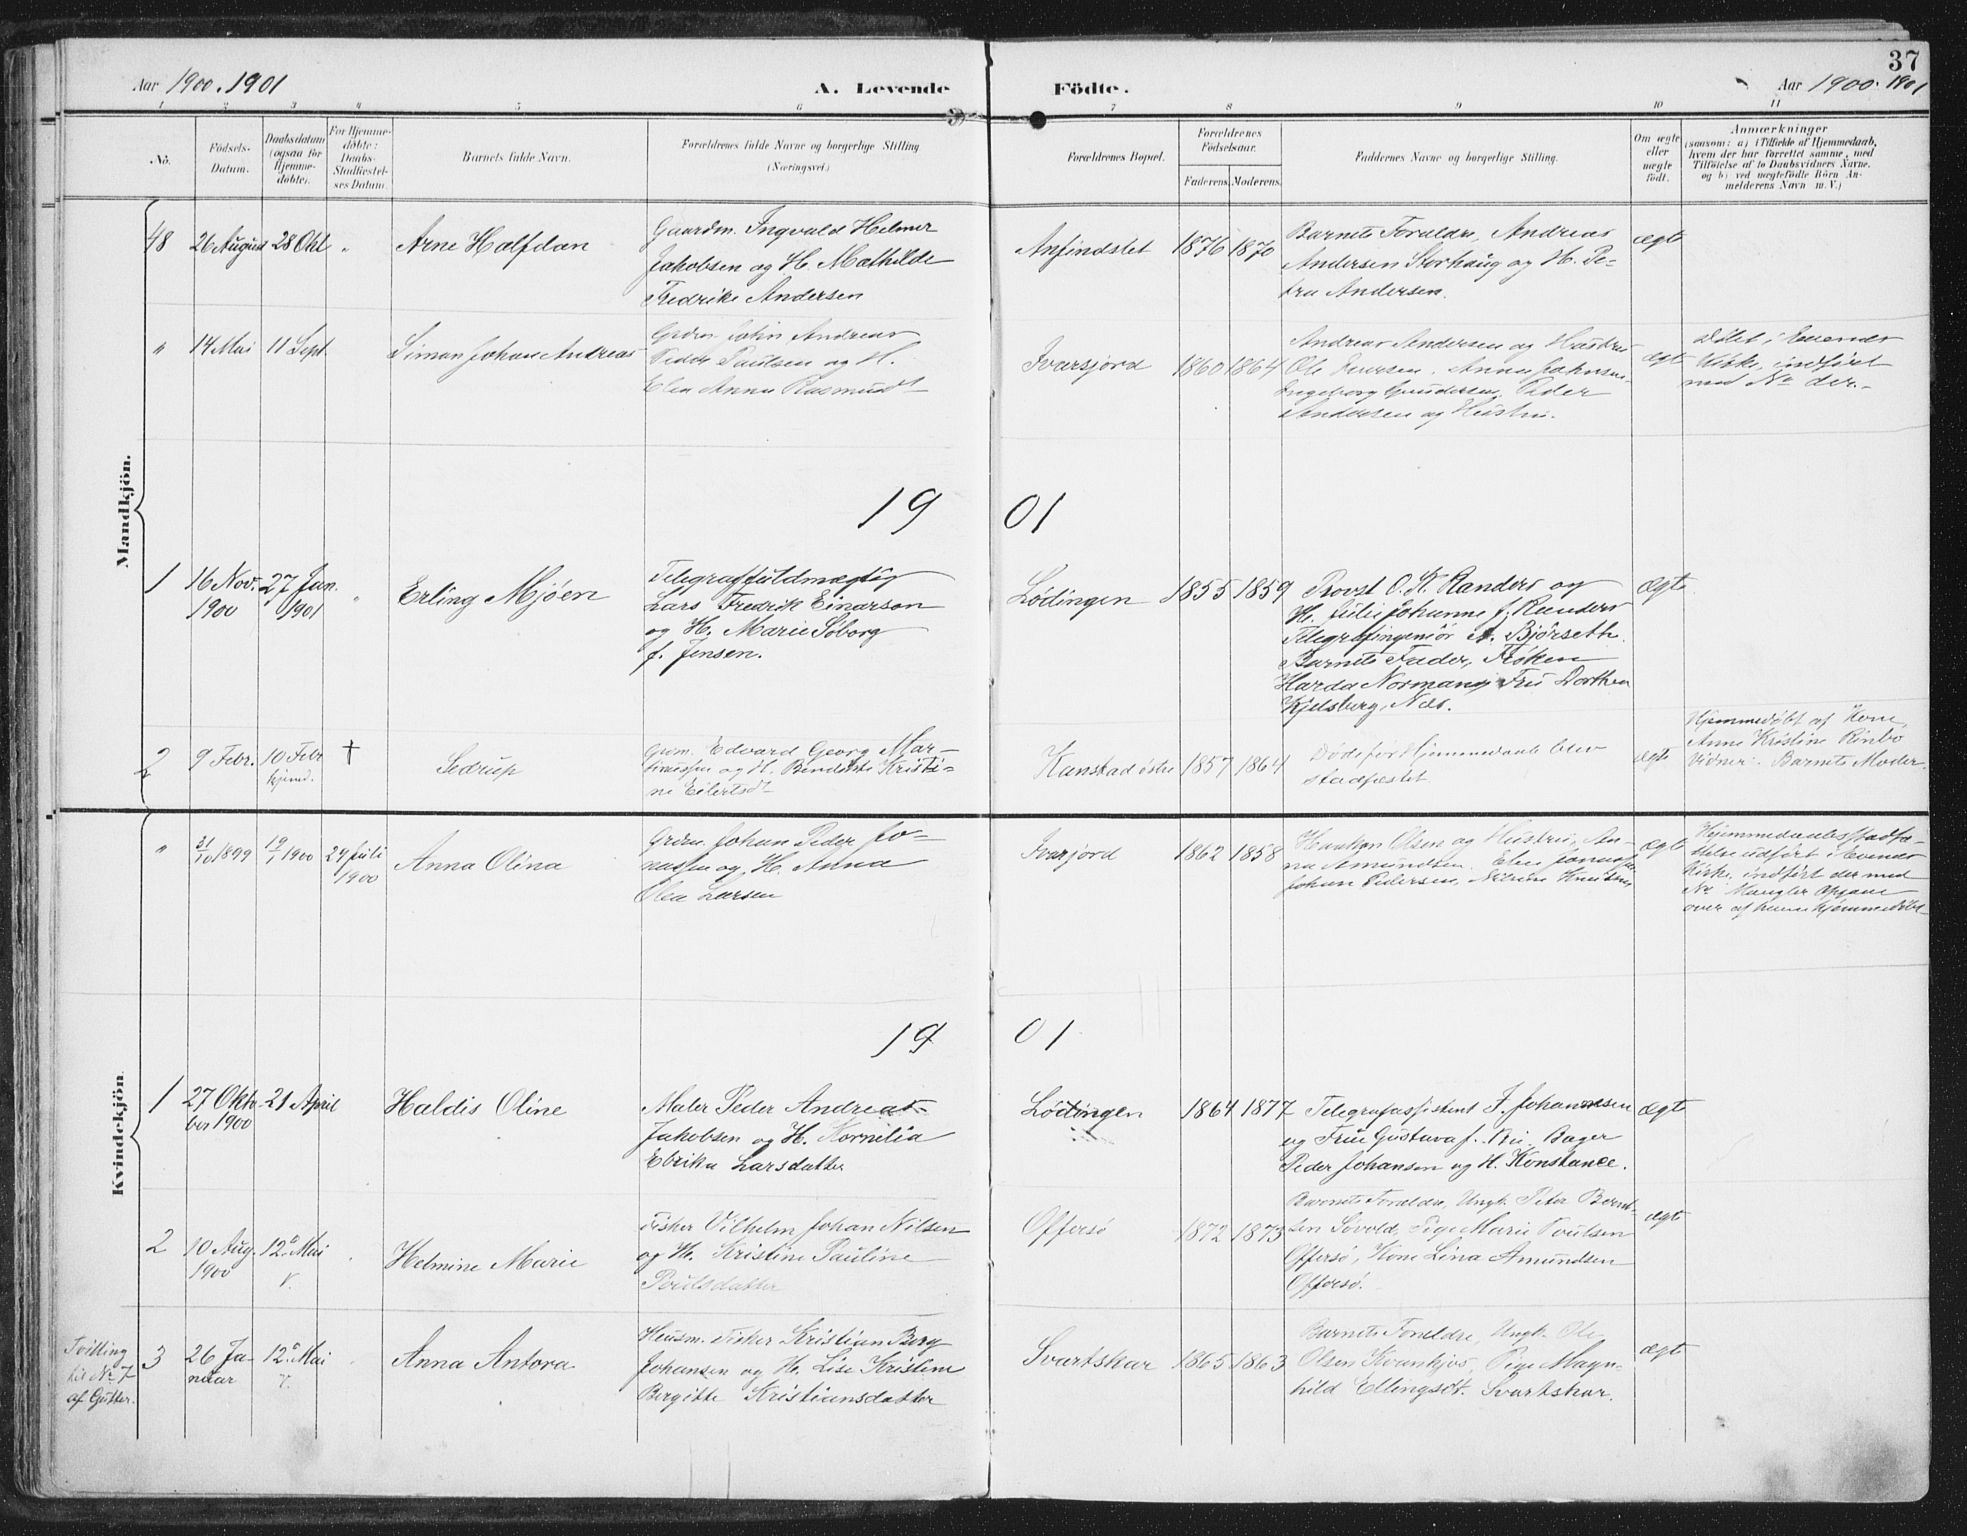 37
Aar 1900. 1901
A. Levende
Födte.
Aar 1900. 1901
1 2 3 4 5 6 7 8 9 10 11
No.
Födsels-
Datum.
Daabsdatum
(ogsaa for
Hjemme-
döbte).
For Hjemme-
döbte:
Daabs-
Stadfæstel-
ses Datum.
Barnets fulde Navn.
Forældrenes fulde Navne og borgerlige Stilling
(Næringsvei.)
Forældrenes Bopæl.
Forældrenes
Födselsaar.
Faderens. Moderens.
Faddernes Navne og borgerlige Stilling.
Om ægte
eller
uægte
födt.
Anmærkninger
(saasom: a) i Tilfælde af Hjemmedaab,
hvem der har forrettet samme, med
Tilföielse af to Daabsvidners Navne.
og b) ved uægtefödte Börn An-
melderens Navn m. V.)
Mandkjön.
48 26 August 28 Okt " Arne Halfdan
Gaardm. Ingvald Helmer
Jakobsen og H. Mathilde
Fredrike Andersen
Anfindslet 1876 1870
Barnets Forældre, Andreas
Andersen Storhaug og H. Pe-
tra Andersen.
ægte
" 14 Mai 11 Sept. Simon Johan Andreas
Grdm. John Andreas
Peder Paulsen og H.
Elen Anna Rasmusdt
Ivarsjord 1860 1864
Andreas Andersen og Hustru
Ole Iversen, Anna Johnsen,
Ingeborg Knudsen, Peder
Andersen og Hustru.
ægte
Döbt i Evenes
Kirke, indført
med No der.-
19 01
1 16 Nov. 1900 27 Jan. 1901 " Erling Mjöen
Telegraffuldmægtig
Lars Fredrik Einarson
og H. Marie Söborg
f. Jensen.
Lödingen 1855 1859
Provst O. K. Randers og
H. Julie Johanne f. Randers
Telegrafingeniör A. Björseth.
Barnets Fader, Fröken
Harda Normann, Fru Dorthea
Kjelsberg, Næs.
Ægte
2 9 Febr. 10 Febr hjemd. † Sedrup
Grdm. Edvard Georg Mar-
tinussen og H. Bendikte Kristi-
ne Eilertsdt
Kanstad östre 1857 1864
Döde för Hjemmedaab blev
stadfæstet
ægte
Hjemmedöbt af Kone
Anne Kristine Rinbö
Vidner: Barnets Moder
Kvindekjön.
" 31/10 1899 19/1 1900 29 Juli 1900 Anna Olina
Grdm. Johan Peder Jo-
nassen og H. Anna
Olea Larsen
Ivarjord 1862 1858
Haakon Olsen og Hustru, An-
na Amundsen, Elen Jonassen
Johan Pedersen, Nilsine Knudsen
ægte
Hjemmedaabsstadfæ-
stelse udført i Evenes
Kirke, indført der med
No Mangler Opgave
over af hvem hjemmedöbt
19 01
1 27 Okto- ber 1900 21 April Haldis Oline
Maler Peder Andreas
Jakobsen og H. Kornelia
Ebrika Larsdatter
Lödingen 1864 1877
Telegrafassistent F. Johannesen
og Frue Gustava f. Bager
Peder Johansen og H. Konstance.
ægte
2 10 Aug. 1900 12te Mai V. " Helmine Marie
Fisker Vilhelm Johan Nilsen
og H. Kristine Pauline
Poulsdatter
Offersö 1872 1873
Barnets Forældre, Ungk. Peter Bernt-
sen Sövold, Pige Marie Poulsen
Offersö, Kone Lina Amundsen
Offersö.
ægte
Tvilling
til No 7
af Gutter.
3 26 Ja- nuar 12te Mai V. " Anna Antora
Husm. Fisker Kristian Berg
Johansen og H. Lise Kristine
Bergitte Kristiansdatter
Svartskar 1865 1863
Barnets Forældre, Ungk. Ole
Olsen Kvankjos, Pige Magn-
hild Ellingsdt. Svartskar.
ægte